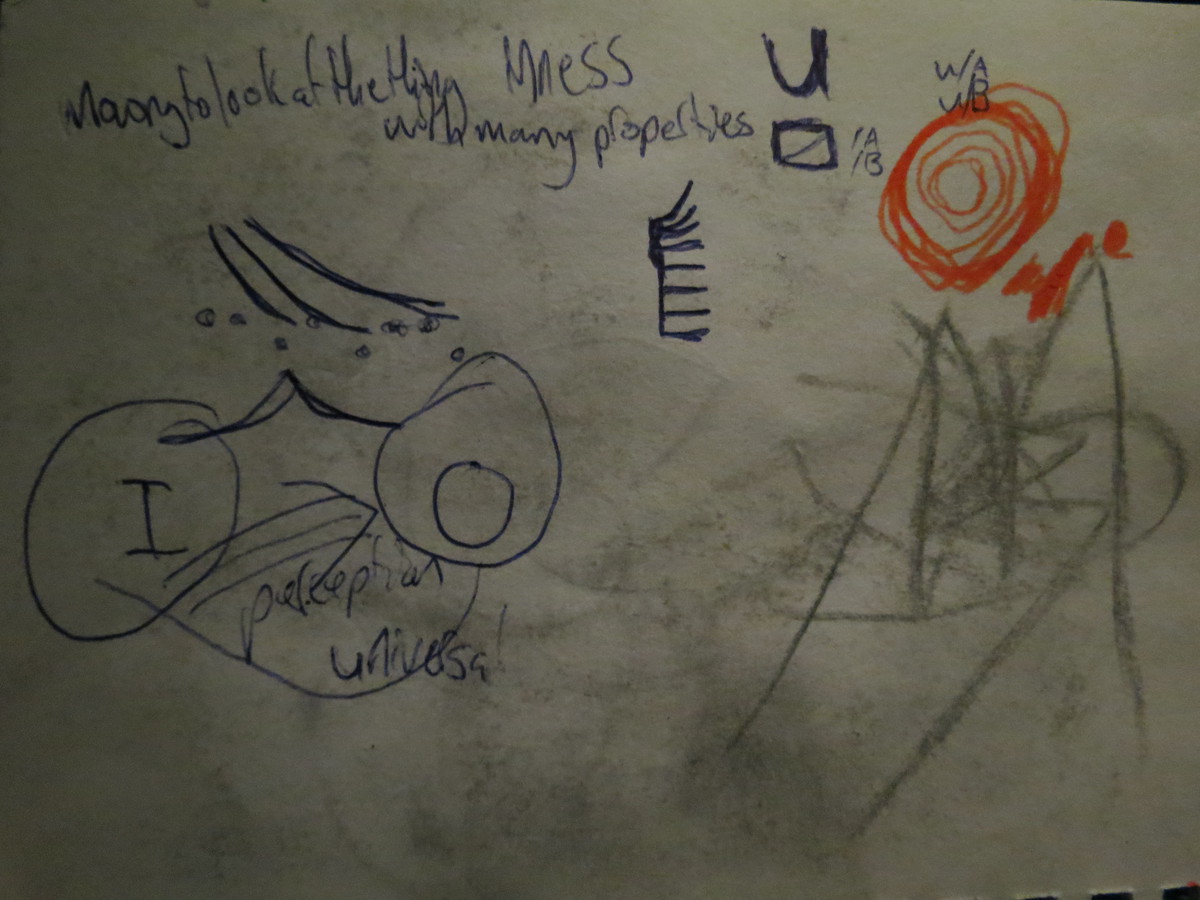 to look at the thing
with many properties
U
/A
/B
U/A
U/B
I
O
perception
universal